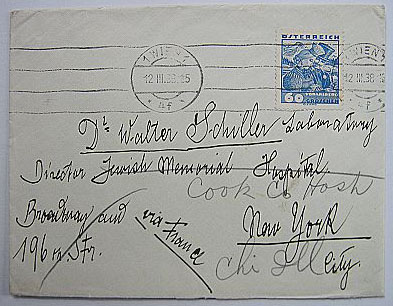 1 WIEN 1
12.III.38.15
* 4f *
ÖSTERREICH
60
GROSCHEN
WIEN
12.III.38
* 4f
Dr. Walter Schiller Laboratory
Director Jewish Memorial Hospital
Cook Co Hosp
Broadway and via France New York
196th Str. Chi Ill City.